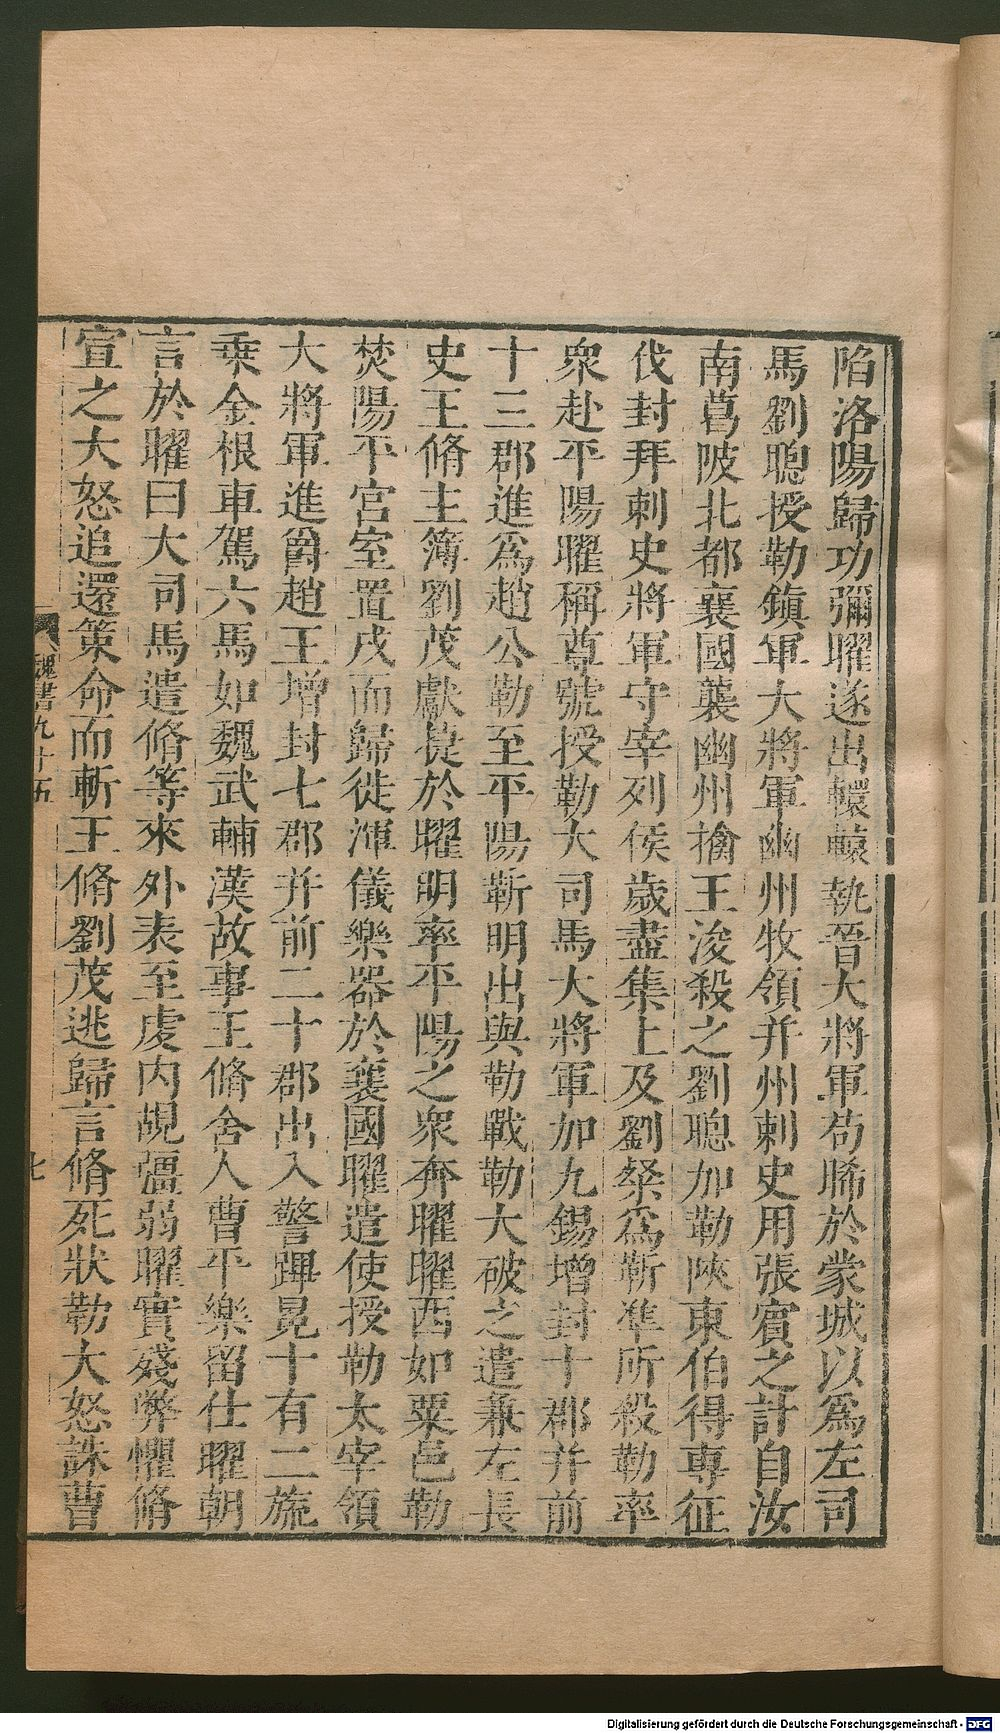 陷洛陽歸功彌曜遂出轘轅執晉大將軍苟晞於蒙城以爲左司
馬劉聰授勒鎮軍大將軍幽州牧領并州刺史用張賓之計自汝
南葛陂北都襄國襲幽州擒王浚殺之劉聰加勒陝東伯得專征
伐封拜刺史將軍守宰列侯歲盡集上及劉粲爲靳準所殺勒率
衆赴平陽曜稱尊號授勒大司馬大將軍加九錫增封十郡并前
十三郡進爲趙公勒至平陽靳明出與勒戰勒大破之遣兼左長
史王脩主簿劉茂獻捷於曜明率平陽之衆奔曜曜西如粟邑勒
焚陽平宮室置戍而歸徙渾儀樂器於襄國曜遣使授勒太宰領
大將軍進爵趙王增封七郡并前二十郡出入警蹕冕十有二旒
乘金根車駕六馬如魏武輔漢故事王脩舍人曹平樂留仕曜朝
言於曜曰大司馬遣脩等來外表至虔内覘彊弱曜實殘弊懼脩
宣之大怒追還策命而斬王脩劉茂逃歸言脩死狀勒大怒誅曹
魏書九十五
七
Digitalisierung gefördert durch die Deutsche Forschungsgemeinschaft - DFG